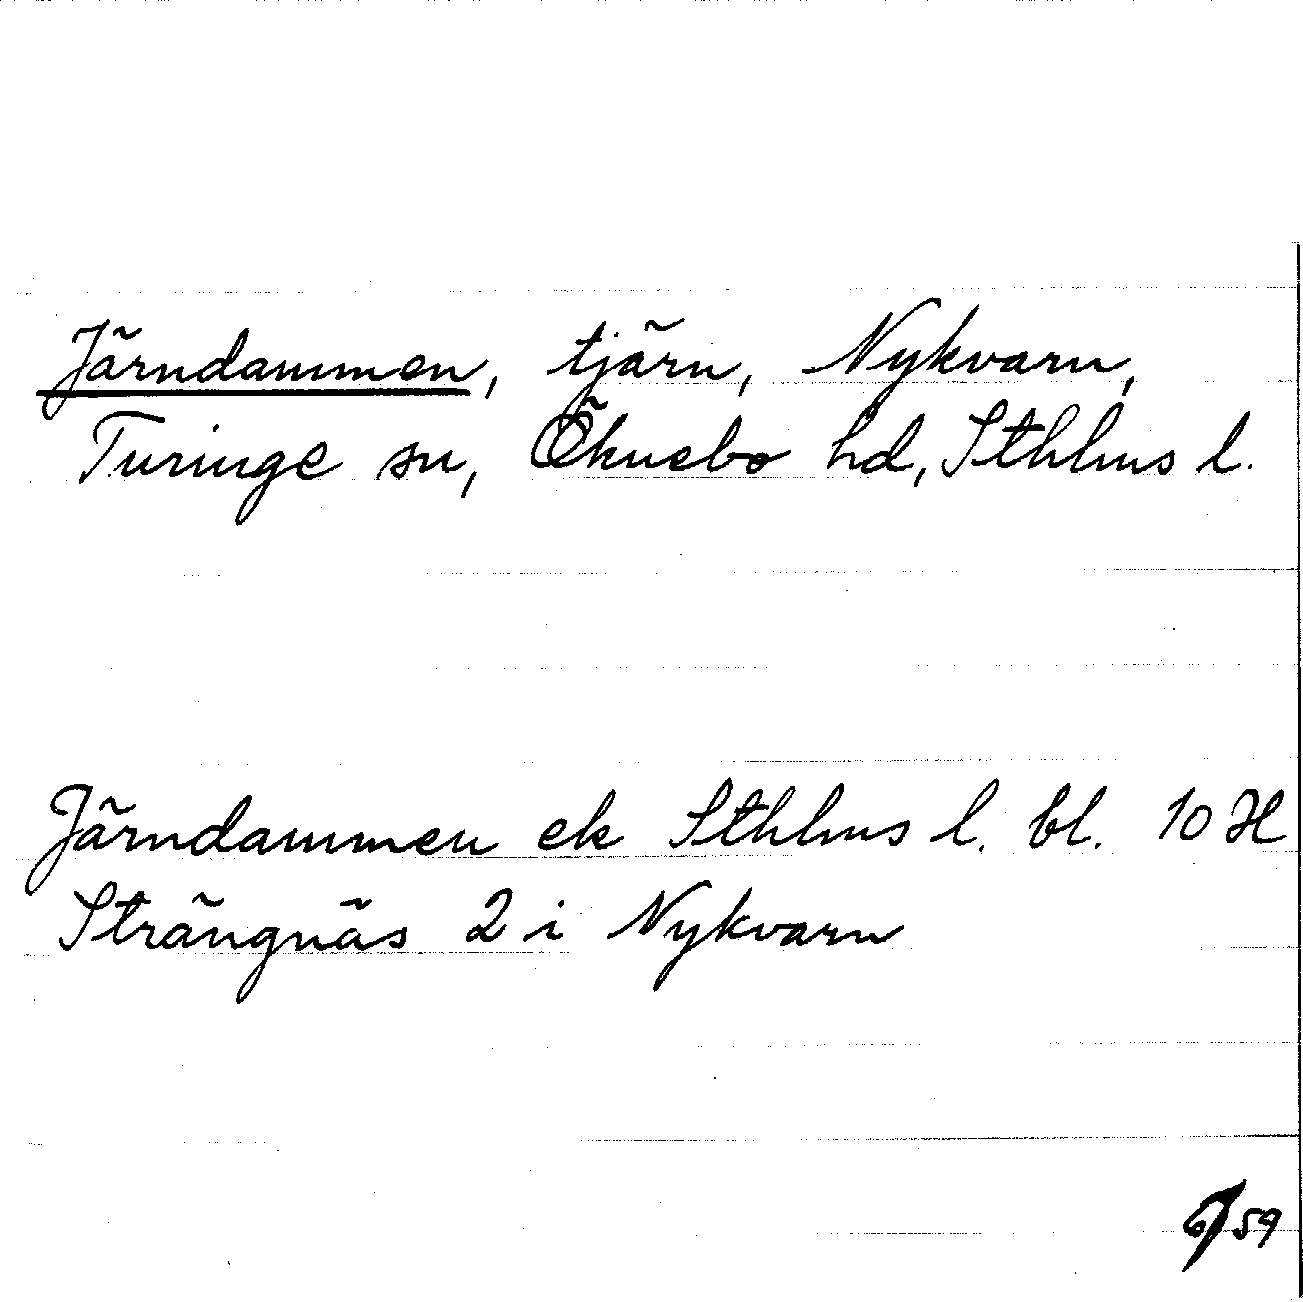 Järndammen, tjärn, Nykvarn,
Turinge sn, Öknebo hd, Sthlms l.
Järndammen ek Sthlms l. bl. 10 H
Strängnäs 2 i Nykvarn
6/59